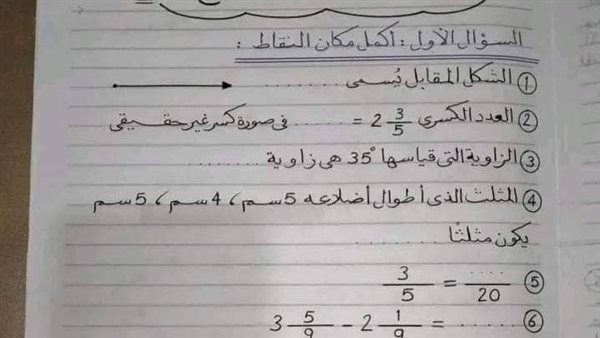 السؤال الأول : أكمل مكان النقاط :
① الشكل المقابل يُسمى ........
② العدد الكسرى 2 3/5 = ........ فى صورة كسر غير حقيقى
③ الزاوية التى قياسها 35° هى زاوية ........
④ المثلث الذى أطوال أضلاعه 5 سم ، 4 سم ، 5 سم
يكون مثلثًا ........
⑤ 3/5 = ..../20
⑥ 3 5/9 - 2 1/9 = ......